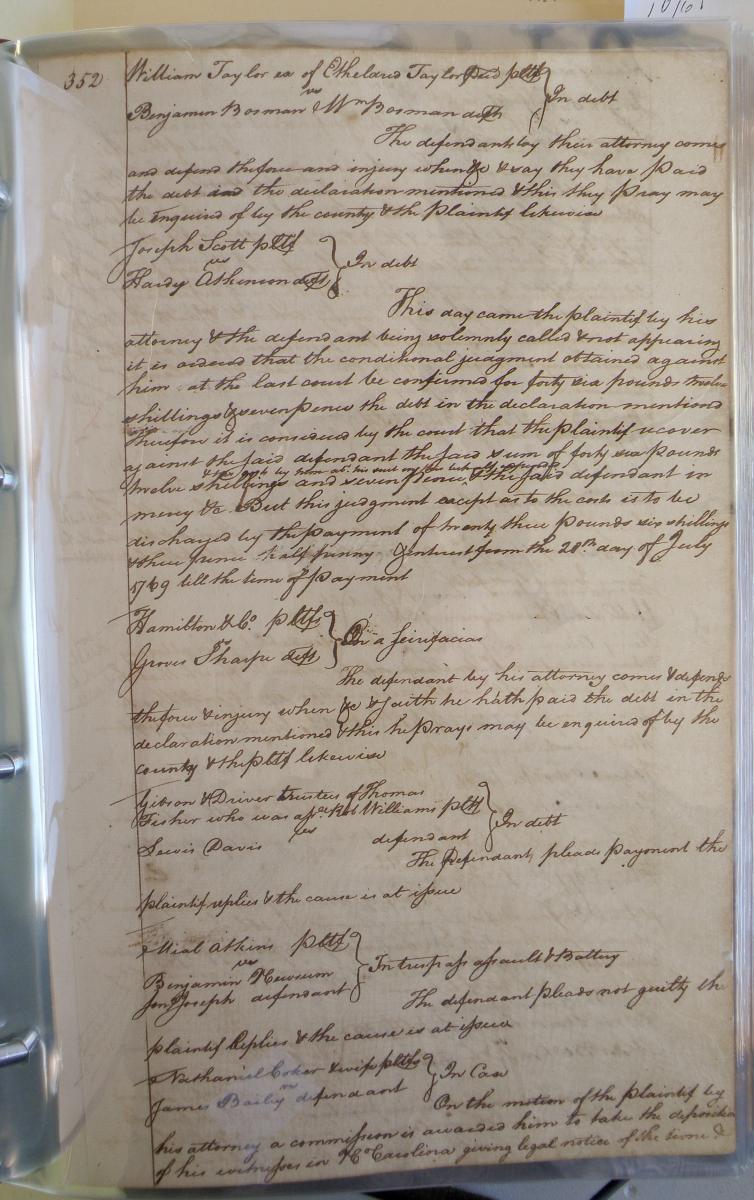 352
William Taylor ex of Etheldred Taylor Decd pltf
vs
In debt
Benjamin Bosman & Wm Bosman defts
The defendants by their attorney comes
and defend the force and injury when &c & say they have paid
the debt in the declaration mentioned & this they pray may
be enquired of by the county & the plaintif likewise
Joseph Scott pltf
vs
In debt
Hardy Atkinson deft
This day came the plaintif by his
attorney & the defendant being solemnly called & not appearing
it is ordered that the conditional judgment obtained against
him at the last court be confirmed for forty six pounds twelve
shillings & seven pence the debt in the declaration mentioned
Therefore it is considered by the court that the plaintif recover
against the said defendant the said sum of forty six pounds
twelve shillings and seven pence & the said defendant in
mercy &c But this judgment except as to the costs is to be
discharged by the payment of twenty three pounds six shillings
& three pence half penny & interest from the 28th day of July
1769 till the time of payment
Hamilton & Co pltfs
vs
On a scirefacias
Groves Sharpe deft
The defendant by his attorney comes & defends
the force & injury when &c & saith he hath paid the debt in the
declaration mentioned & this he prays may be enquired of by the
county & the pltf likewise
Gibson & Driver trustees of Thomas
Fisher who was assee Rob Williams pltf
vs
In debt
Lewis Davis defendant
The Defendant pleads payment the
plaintif replies & the cause is at issue
Mial Atkins pltf
vs
In trespass assault & Battery
Benjamin Newsum
Son Joseph defendant
The defendant pleads not guilty the
plaintif Replies & the cause is at issue
Nathaniel Coker & wife pltfs
vs
In Case
James Baily defendant
On the motion of the plaintif by
his attorney a commission is awarded him to take the deposition
of his witnesses in No Carolina giving legal notice of the time &